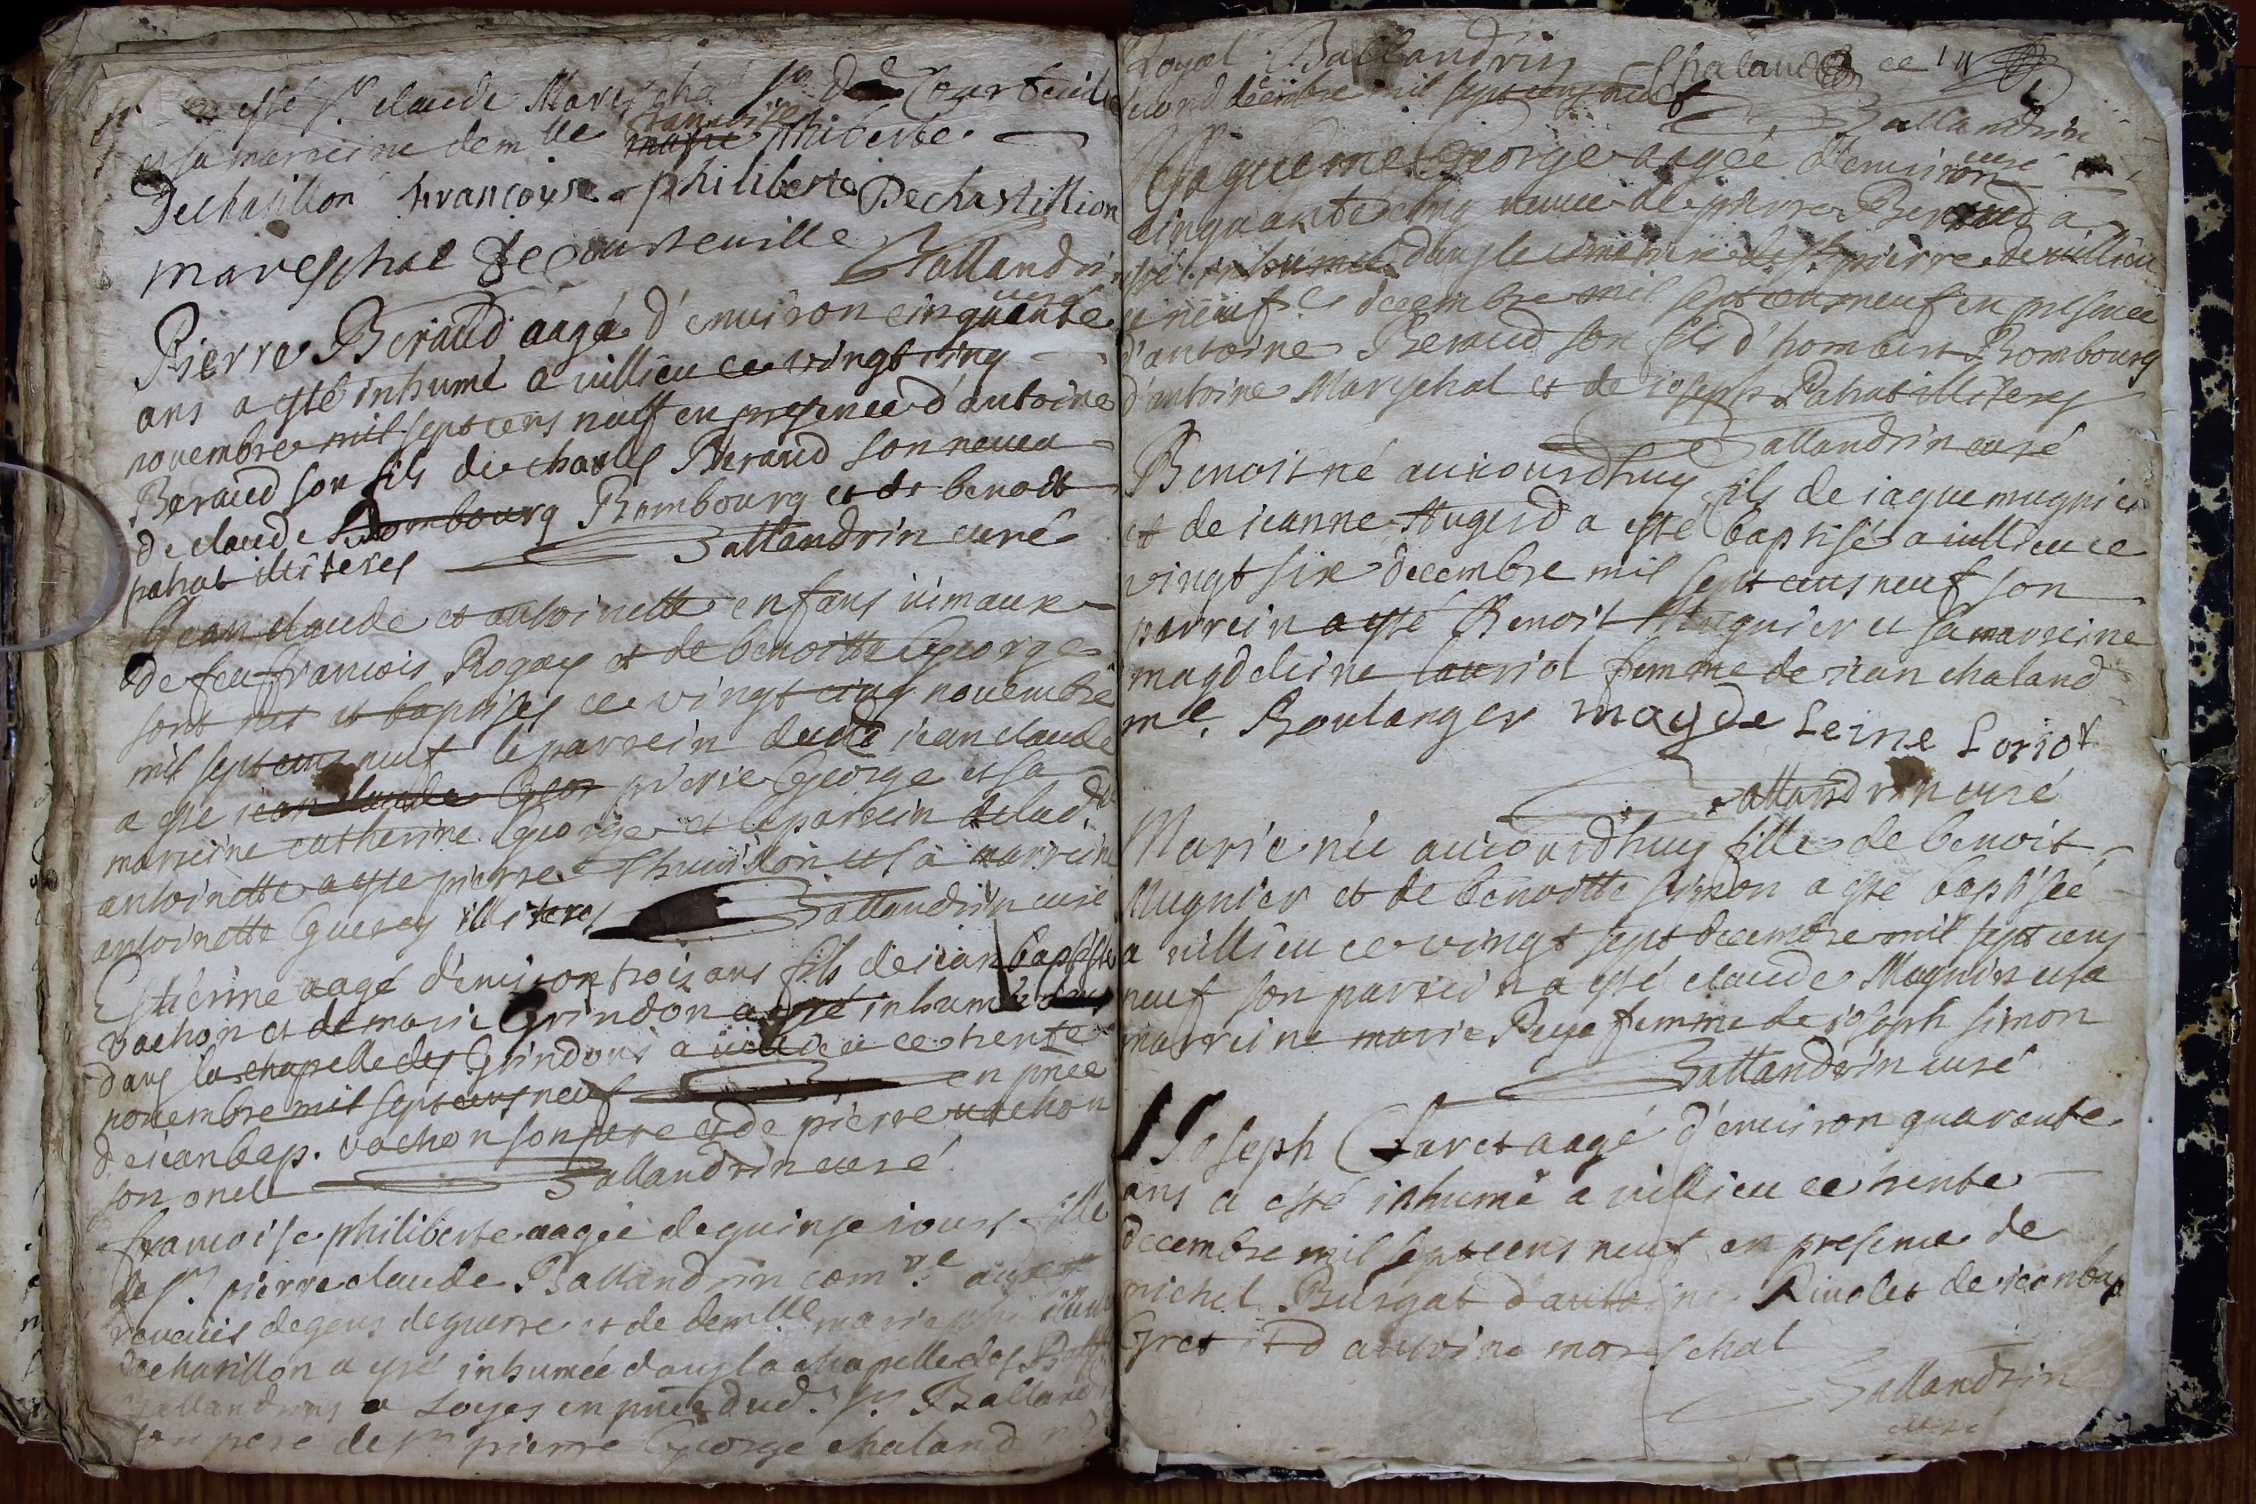 esté sr claude Mareschal sr De Courteuille
et sa marreine demlle françoise philiberte
Dechatillon françoyse philiberte Dechastillion
mareschal de courteuille
Ballandrin curé
Pierre Beraud aagé d'enuiron cinquante
ans a esté inhumé a uillieu ce vingt cinq
nouembre mil sept cens neuf en presence d'antoine
Beraud son fils de charles Beraud son neueu
de claude Bombourg Bombourg et de benoit
pahat illiteres Ballandrin curé
Jean claude et antoinette enfans iumaux
de feu francois Rogay et de benoitte George
sont nés et baptisés ce vingt cinq nouembre
mil sept cens neuf le parrein dudit iean claude
a esté iean claude Geor pierre George et sa
marreine catherine George et le parrein de lad.
antoinette a esté pierre et sa marreine
antoinette illiteres Ballandrin curé
Estienne aagé d'enuiron trois ans fils de iean baptiste
vachon et de marie Grindon a esté inhumé
dans la chapelle des Grindons a uillieu ce trente
nouembre mil sept cens neuf en pñce
de iean bap. vachon son pere et de pierre vachon
son oncle Ballandrin curé
francoise philiberte aagée de quinse iours fille
de sr pierre claude Ballandrin comre aux
reueües de gens de guerre et de demlle marie
dechatillon a esté inhumée dans la chapelle des
Ballandrins a Loyes en pñce dud. sr Balland
son pere de sr pierre George chaland
Royal Ballandrin Chaland ce
second decembre mil sept cens neuf
Ballandrin curé
Jaquème George aagée d'enuiron
cinquante cinq veuue de pierre Beraud a
esté inhumée dans le cimetiere de st pierre de uillieu
ce neuf decembre mil sept cens neuf en presence
d'antoine Beraud son fils d'hombert Bombourg
d'antoine Mareschal et de ioseph Pahat illiteres
Ballandrin curé
Benoit né auiourdhuy fils de iaque mugnier
et de ieanne Hugerd a esté baptisé a uillieu ce
vingt sixe decembre mil sept cens neuf son
parrein a esté Benoit Mugnier et sa marreine
magdeleine lauriol femme de iean chaland
me. Boulanger magde Leine Loriot
Ballandrin curé
Marie née auiourdhuy fille de benoit
Mugnier et de benoitte simon a esté baptisée
a uillieu ce vingt sept decembre mil sept cens
neuf son parrein a esté claude Mugnier et sa
marreine marie femme de ioseph simon
Ballandrin curé
Joseph aagé d'enuiron quarante
ans a esté inhumé a uillieu ce trente
decembre mil sept cens neuf en presence de
michel Burgat d'antoine Riuolet de iean bap
Gret et d'antoine mareschal
Ballandrin
curé